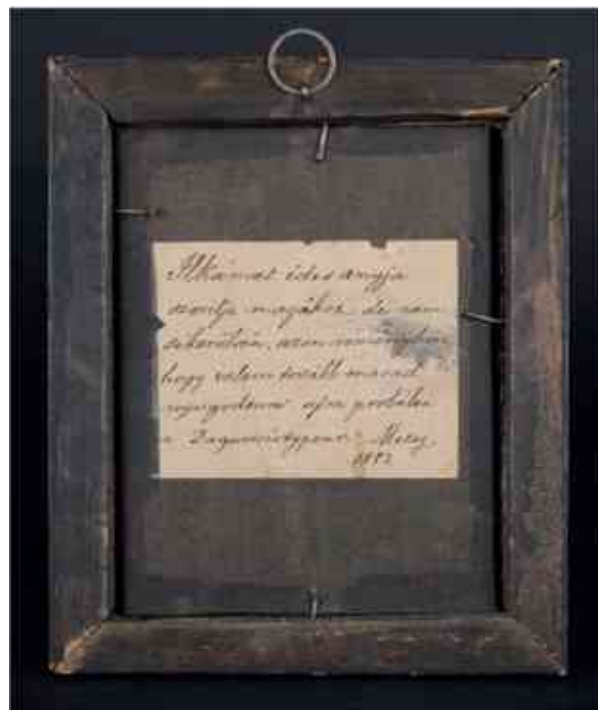 Ilkámat édes anyja
szoritja magához de nem
sikerülvén, azon reményben
hogy velem tovább marad
nyugodtan ujra probálta
a Daguerrotypeur
1852